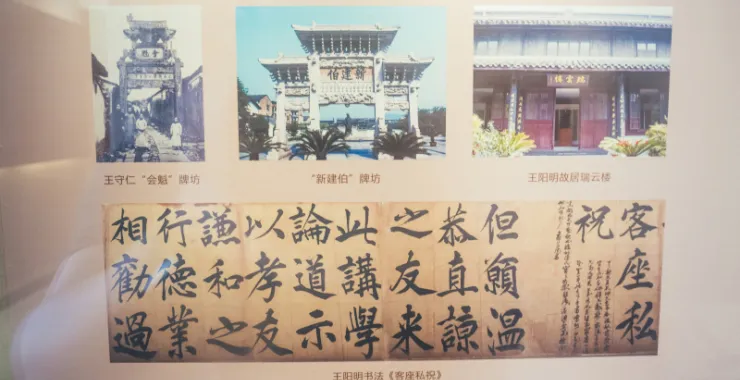 會魁
新建伯
瑞雲樓
王守仁“会魁”牌坊
“新建伯”牌坊
王阳明故居瑞云楼
客座私
祝
但願温
恭直諒
之友来
此講學
論道示
以孝友
謙和之
行德業
相勸過
王阳明书法《客座私祝》